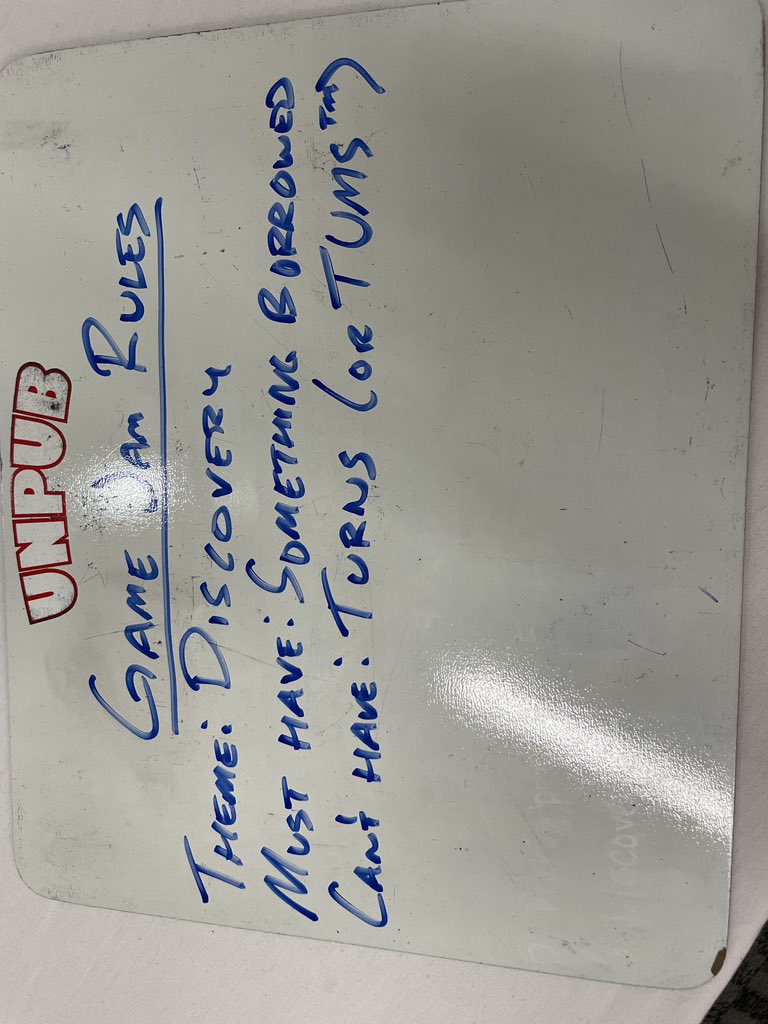 UNPUB
GAME JAM RULES
THEME: DISCOVERY
MUST HAVE: SOMETHING BORROWED
CAN'T HAVE: TURNS (OR TUMS™)